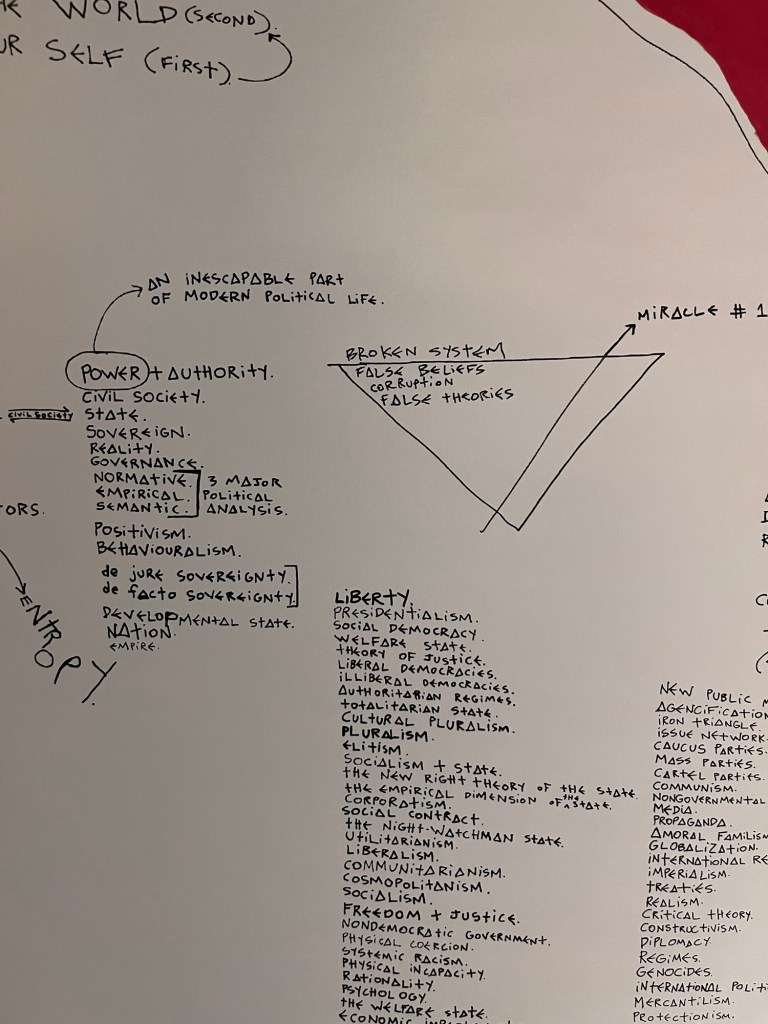 WORLD (SECOND).
SELF (FIRST).
AN INESCAPABLE PART
OF MODERN POLITICAL LIFE.
POWER + AUTHORITY.
CIVIL SOCIETY.
CIVIL SOCIETY
STATE.
SOVEREIGN.
REALITY.
GOVERNANCE.
NORMATIVE.
EMPIRICAL.
SEMANTIC.
3 MAJOR
POLITICAL
ANALYSIS.
POSITIVISM.
BEHAVIOURALISM.
de JURE SOVEREIGNTY.
de FACTO SOVEREIGNTY.
DEVELOPMENTAL STATE.
NATION.
EMPIRE.
ORS.
ENTROPY.
MIRACLE # 1
BROKEN SYSTEM
FALSE BELIEFS
CORRUPTION
FALSE THEORIES
LIBERTY.
PRESIDENTIALISM.
SOCIAL DEMOCRACY.
WELFARE STATE.
THEORY OF JUSTICE.
LIBERAL DEMOCRACIES.
ILLIBERAL DEMOCRACIES.
AUTHORITARIAN REGIMES.
TOTALITARIAN STATE.
CULTURAL PLURALISM.
PLURALISM.
ELITISM.
SOCIALISM + STATE.
THE NEW RIGHT THEORY OF THE STATE.
THE EMPIRICAL DIMENSION OF THE STATE.
CORPORATISM.
SOCIAL CONTRACT.
THE NIGHT-WATCHMAN STATE.
UTILITARIANISM.
LIBERALISM.
COMMUNITARIANISM.
COSMOPOLITANISM.
SOCIALISM.
FREEDOM + JUSTICE.
NONDEMOCRATIC GOVERNMENT.
PHYSICAL COERCION.
SYSTEMIC RACISM.
PHYSICAL INCAPACITY.
RATIONALITY.
PSYCHOLOGY.
THE WELFARE STATE.
ECONOMIC
NEW PUBLIC
AGENCIFICATION
IRON TRIANGLE.
ISSUE NETWORK
CAUCUS PARTIES.
MASS PARTIES.
CARTEL PARTIES.
COMMUNISM.
NONGOVERNMENTAL
MEDIA.
PROPAGANDA.
AMORAL FAMILISM
GLOBALIZATION.
INTERNATIONAL RE
IMPERIALISM.
TREATIES.
REALISM.
CRITICAL THEORY.
CONSTRUCTIVISM.
DIPLOMACY.
REGIMES.
GENOCIDES.
INTERNATIONAL POLITI
MERCANTILISM.
PROTECTIONISM.